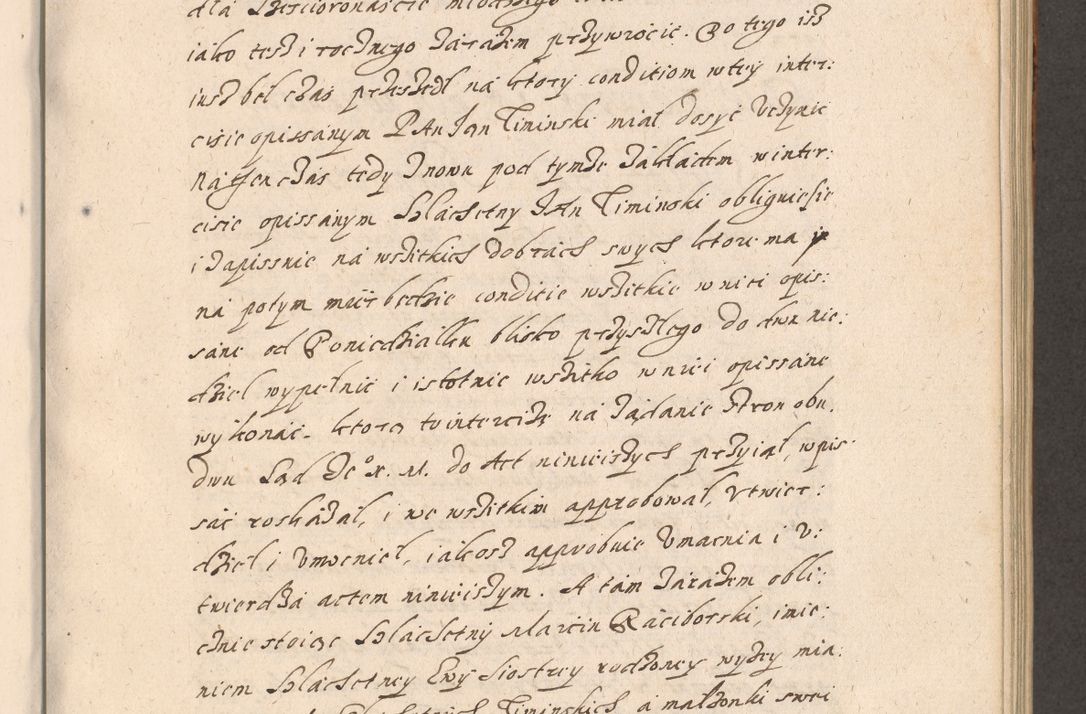 iako tesz i rocznego zarazem przywrocic. Po tego isz
insz bel czas przeszedl na ktory conditiom w tey inter:
cisie opissanym PAn Jan Timinski mial dosyc uczynic
Na ten czas tedy znowu pod tymze zakladem w inter:
cisie opissanym Slachetny JAn Timinski obliguie sie
i zapissuie na wszitkich dobrach swych ktore ma
na potym miec bedzie conditie wszitkie w niei opis:
sane od Poniedzialku blisko przyszlego do dwu nie:
dziel wypelnic i istotnie wszitko w niei opissane
wykonac. ktorą tu intercizę na ządanie stron obu,
dwu Sąd Je° K. M. do Act ninieiszych przyiąl, wpis
sac roskazal, i we wszitkim approbowal, utwier:
dziel i umocniel, iakosz approbuie umacnia i u:
twierdza actem ninieiszym. A tam zarazem obli:
cznie stoiąc Slachetny Marcin Raciborski, imie:
niem Slachetney Ewy siostrzy rodzoney wyzey mia:
Timinskich a malzonki swei